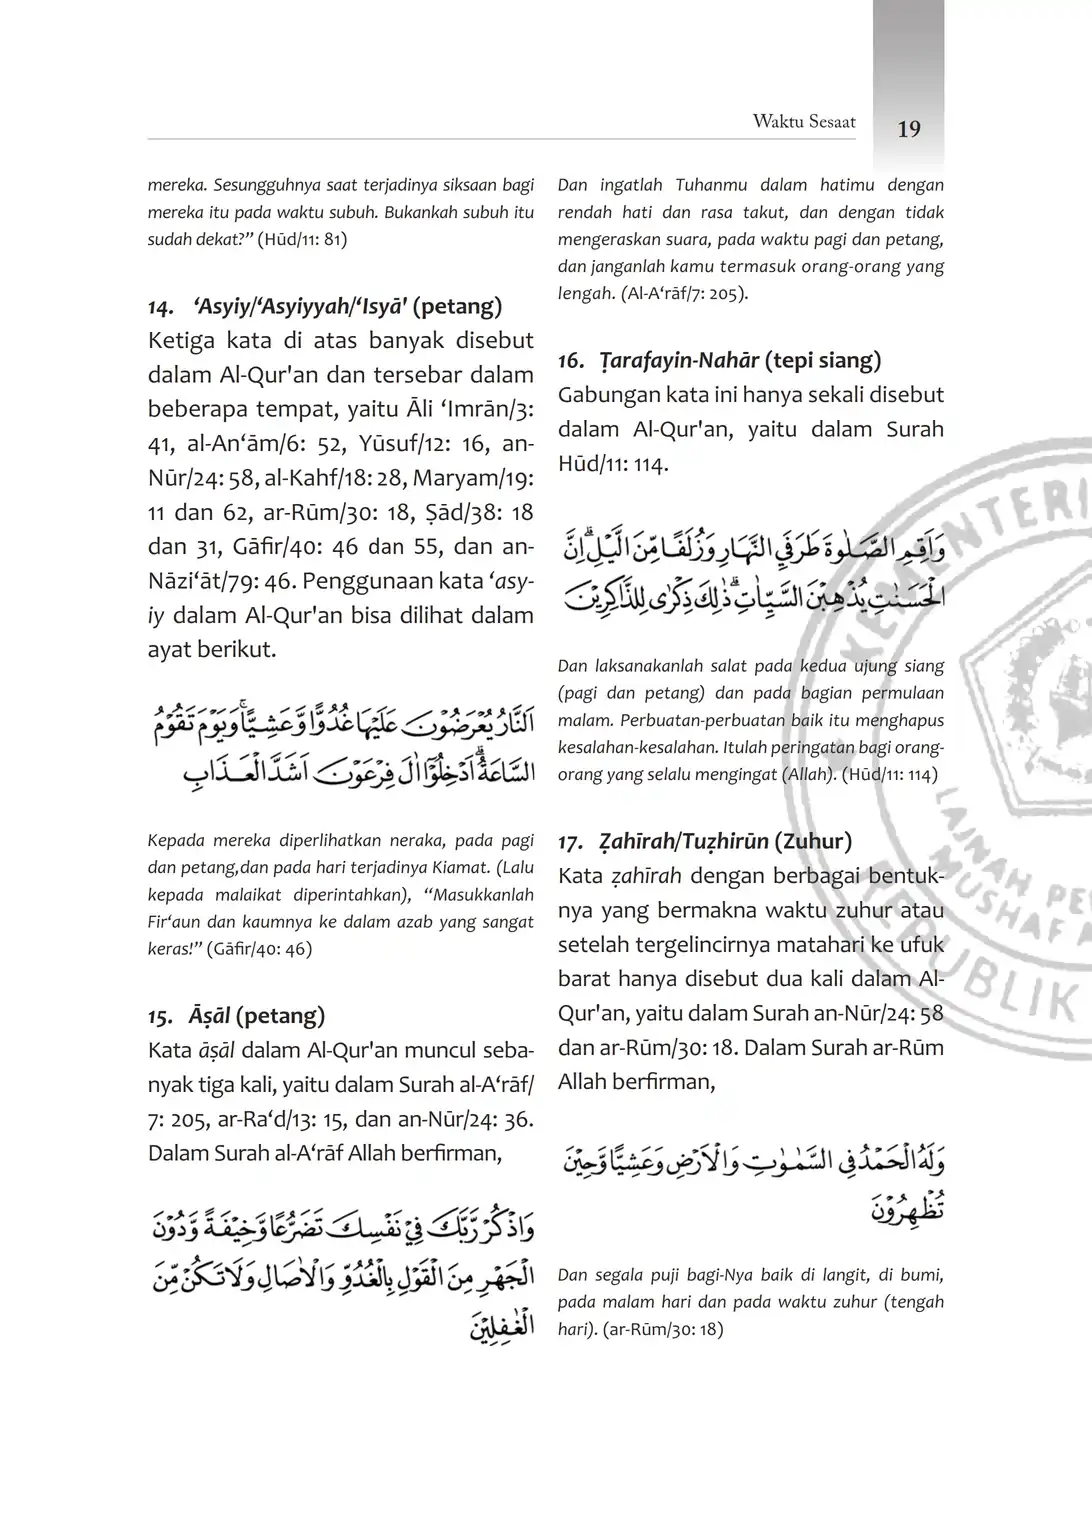 Waktu Sesaat
19
mereka. Sesungguhnya saat terjadinya siksaan bagi
mereka itu pada waktu subuh. Bukankah subuh itu
sudah dekat?” (Hūd/11: 81)
14. ‘Asyiy/‘Asyiyyah/‘Isyā' (petang)
Ketiga kata di atas banyak disebut
dalam Al-Qur'an dan tersebar dalam
beberapa tempat, yaitu Āli ‘Imrān/3:
41, al-An‘ām/6: 52, Yūsuf/12: 16, an-
Nūr/24: 58, al-Kahf/18: 28, Maryam/19:
11 dan 62, ar-Rūm/30: 18, Ṣād/38: 18
dan 31, Gāfir/40: 46 dan 55, dan an-
Nāzi‘āt/79: 46. Penggunaan kata ‘asy-
iy dalam Al-Qur'an bisa dilihat dalam
ayat berikut.
اَلنَّارُ يُعْرَضُوْنَ عَلَيْهَا غُدُوًّا وَّعَشِيًّا ۚ وَيَوْمَ تَقُوْمُ
السَّاعَةُ ۗ اَدْخِلُوْٓا اٰلَ فِرْعَوْنَ اَشَدَّ الْعَذَابِ
Kepada mereka diperlihatkan neraka, pada pagi
dan petang,dan pada hari terjadinya Kiamat. (Lalu
kepada malaikat diperintahkan), “Masukkanlah
Fir‘aun dan kaumnya ke dalam azab yang sangat
keras!” (Gāfir/40: 46)
15. Āṣāl (petang)
Kata āṣāl dalam Al-Qur'an muncul seba-
nyak tiga kali, yaitu dalam Surah al-A‘rāf/
7: 205, ar-Ra‘d/13: 15, dan an-Nūr/24: 36.
Dalam Surah al-A‘rāf Allah berfirman,
وَاذْكُرْ رَّبَّكَ فِيْ نَفْسِكَ تَضَرُّعًا وَّخِيْفَةً وَّدُوْنَ
الْجَهْرِ مِنَ الْقَوْلِ بِالْغُدُوِّ وَالْاٰصَالِ وَلَا تَكُنْ مِّنَ
الْغٰفِلِيْنَ
Dan ingatlah Tuhanmu dalam hatimu dengan
rendah hati dan rasa takut, dan dengan tidak
mengeraskan suara, pada waktu pagi dan petang,
dan janganlah kamu termasuk orang-orang yang
lengah. (Al-A‘rāf/7: 205).
16. Ṭarafayin-Nahār (tepi siang)
Gabungan kata ini hanya sekali disebut
dalam Al-Qur'an, yaitu dalam Surah
Hūd/11: 114.
وَاَقِمِ الصَّلٰوةَ طَرَفَيِ النَّهَارِ وَزُلَفًا مِّنَ الَّيْلِ ۗ اِنَّ
الْحَسَنٰتِ يُذْهِبْنَ السَّيِّاٰتِ ۗ ذٰلِكَ ذِكْرٰى لِلذَّاكِرِيْنَ
Dan laksanakanlah salat pada kedua ujung siang
(pagi dan petang) dan pada bagian permulaan
malam. Perbuatan-perbuatan baik itu menghapus
kesalahan-kesalahan. Itulah peringatan bagi orang-
orang yang selalu mengingat (Allah). (Hūd/11: 114)
17. Ẓahīrah/Tuẓhirūn (Zuhur)
Kata ẓahīrah dengan berbagai bentuk-
nya yang bermakna waktu zuhur atau
setelah tergelincirnya matahari ke ufuk
barat hanya disebut dua kali dalam Al-
Qur'an, yaitu dalam Surah an-Nūr/24: 58
dan ar-Rūm/30: 18. Dalam Surah ar-Rūm
Allah berfirman,
وَلَهُ الْحَمْدُ فِى السَّمٰوٰتِ وَالْاَرْضِ وَعَشِيًّا وَّحِيْنَ
تُظْهِرُوْنَ
Dan segala puji bagi-Nya baik di langit, di bumi,
pada malam hari dan pada waktu zuhur (tengah
hari). (ar-Rūm/30: 18)
KEMENTERI
LAJNAH PE
MUSHAF A
REPUBLIK